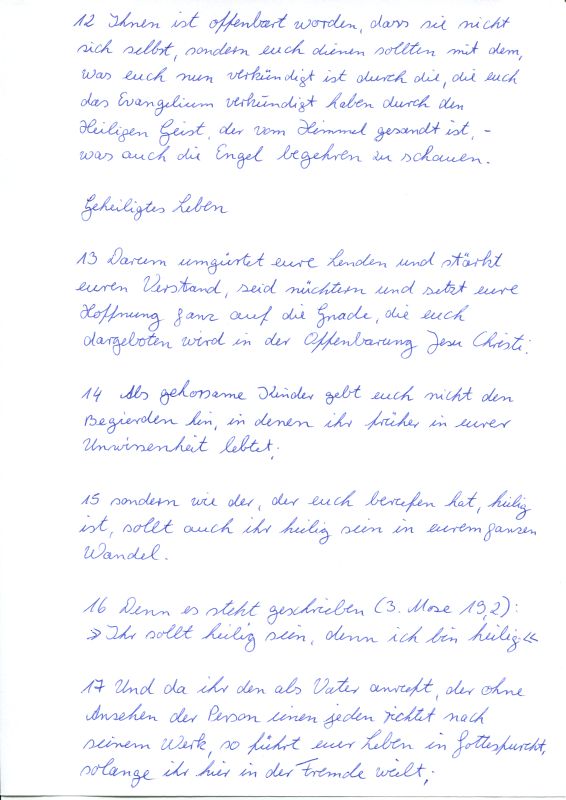 12 Ihnen ist offenbart worden, dass sie nicht
sich selbst, sondern euch dienen sollten mit dem,
was euch nun verkündigt ist durch die, die euch
das Evangelium verkündigt haben durch den
Heiligen Geist, der vom Himmel gesandt ist, -
was auch die Engel begehren zu schauen.
Geheiligtes Leben
13 Darum umgürtet eure Lenden und stärkt
euren Verstand, seid nüchtern und setzt eure
Hoffnung ganz auf die Gnade, die euch
dargeboten wird in der Offenbarung Jesu Christi.
14 Als gehorsame Kinder gebt euch nicht den
Begierden hin, in denen ihr früher in eurer
Unwissenheit lebtet;
15 sondern wie der, der euch berufen hat, heilig
ist, sollt auch ihr heilig sein in eurem ganzen
Wandel.
16 Denn es steht geschrieben (3. Mose 19,2):
»Ihr sollt heilig sein, denn ich bin heilig«
17 Und da ihr den als Vater anruft, der ohne
Ansehen der Person einen jeden richtet nach
seinem Werk, so führt euer Leben in Gottesfurcht,
solange ihr hier in der Fremde weilt;